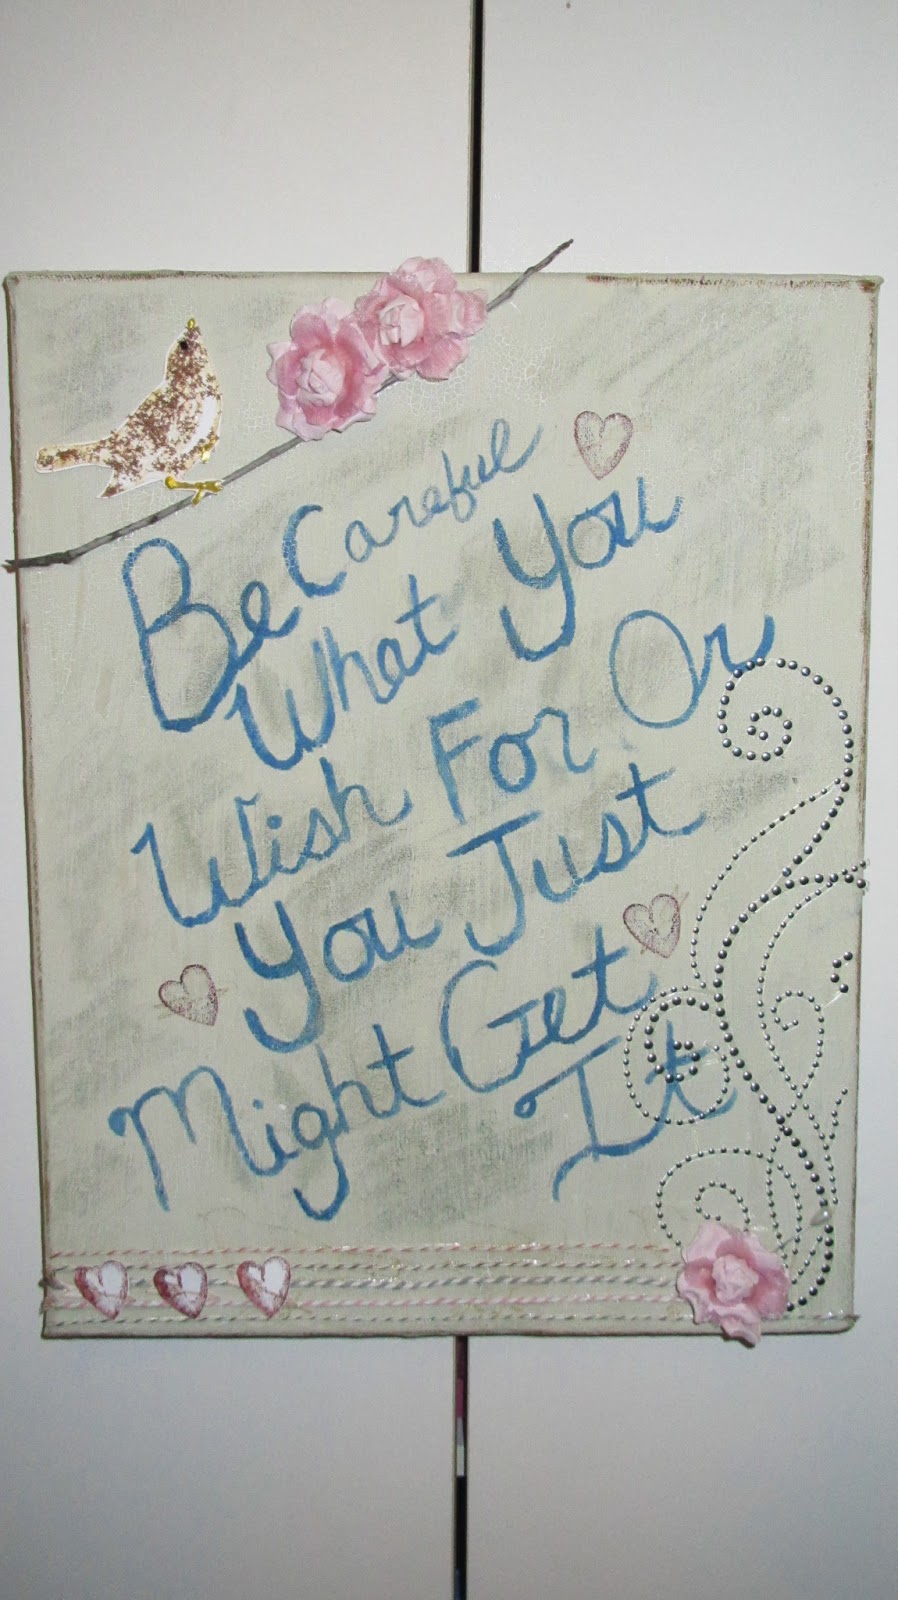 Be Careful
What You
Wish For Or
You Just
Might Get
It